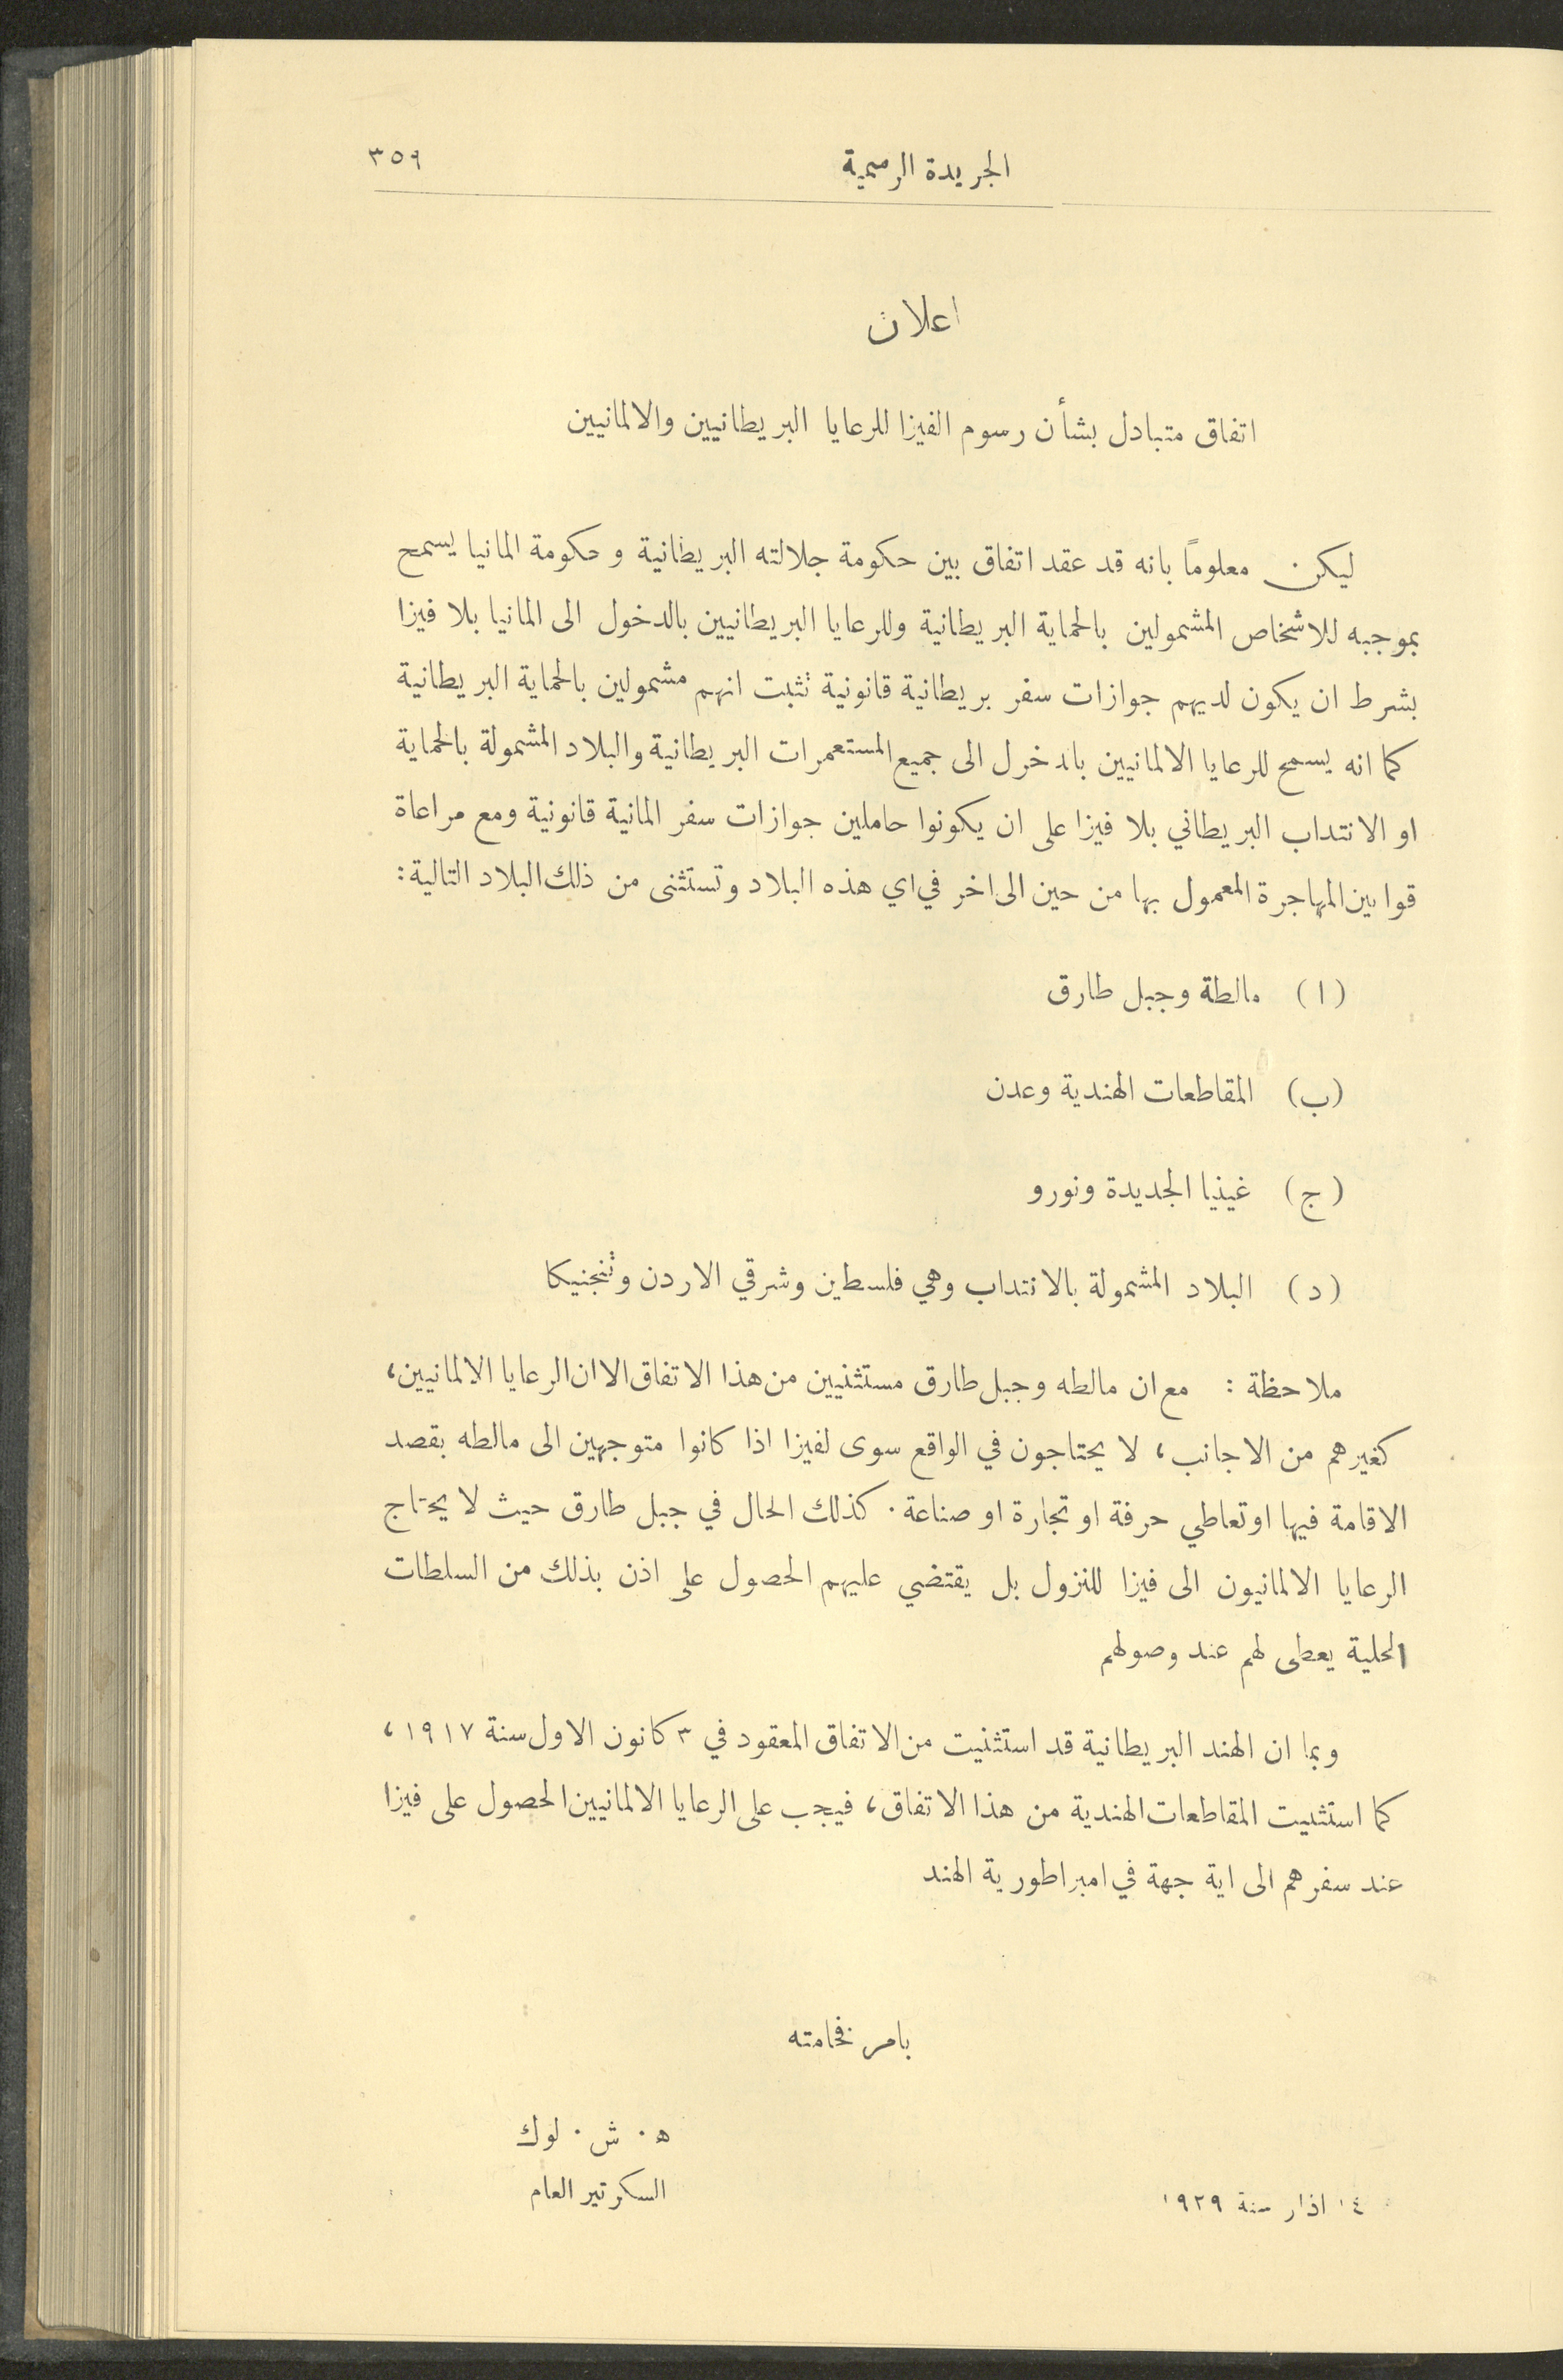 الجريدة الرسمية ٣٥٩
اعلان
اتفاق متبادل بشأن رسوم الفيزا للرعايا البريطانيين والالمانيين
ليكن معلوماً بانه قد عقد اتفاق بين حكومة جلالته البريطانية وحكومة المانيا يسمح
بموجبه للاشخاص المشمولين بالحماية البريطانية وللرعايا البريطانيين بالدخول الى المانيا بلا فيزا
بشرط ان يكون لديهم جوازات سفر بريطانية قانونية تثبت انهم مشمولين بالحماية البريطانية
كما انه يسمح للرعايا الالمانيين بالدخول الى جميع المستعمرات البريطانية والبلاد المشمولة بالحماية
او الانتداب البريطاني بلا فيزا على ان يكونوا حاملين جوازات سفر المانية قانونية ومع مراعاة
قوانين المهاجرة المعمول بها من حين الى اخر في اي هذه البلاد وتستثنى من ذلك البلاد التالية:
(ا) مالطة وجبل طارق
(ب) المقاطعات الهندية وعدن
(ج) غينيا الجديدة ونورو
(د) البلاد المشمولة بالانتداب وهي فلسطين وشرقي الاردن وتنجنيكا
ملاحظة : مع ان مالطه وجبل طارق مستثنيين من هذا الاتفاق الا ان الرعايا الالمانيين،
كغيرهم من الاجانب، لا يحتاجون في الواقع سوى لفيزا اذا كانوا متوجهين الى مالطه بقصد
الاقامة فيها او تعاطي حرفة او تجارة او صناعة. كذلك الحال في جبل طارق حيث لا يحتاج
الرعايا الالمانيون الى فيزا للنزول بل يقتضي عليهم الحصول على اذن بذلك من السلطات
المحلية يعطى لهم عند وصولهم
وبما ان الهند البريطانية قد استثنيت من الاتفاق المعقود في ٣ كانون الاول سنة ١٩١٧،
كما استثنيت المقاطعات الهندية من هذا الاتفاق، فيجب على الرعايا الالمانيين الحصول على فيزا
عند سفرهم الى اية جهة في امبراطورية الهند
بامر فخامته
ه. ش. لوك
السكرتير العام
١٤ اذار سنة ١٩٢٩